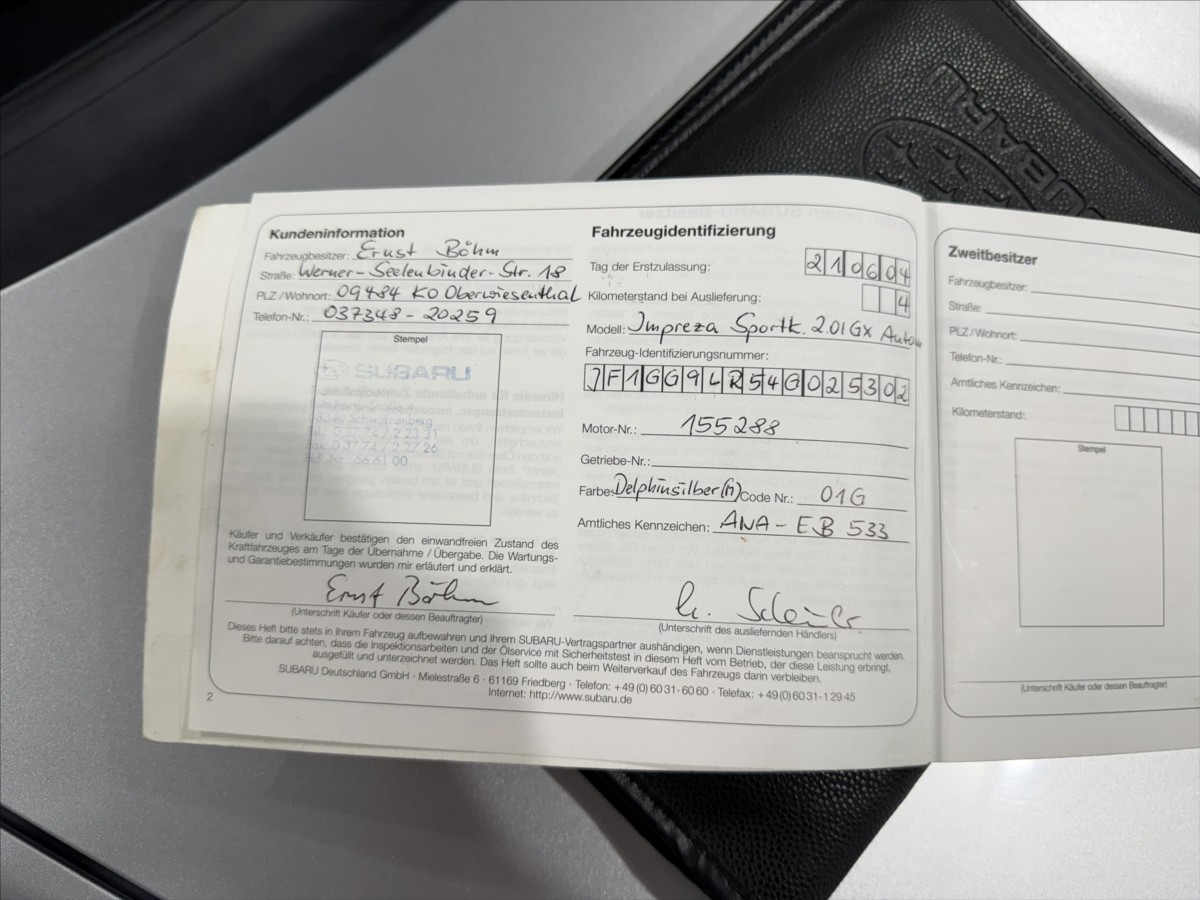 SUBARU
Kundeninformation
Fahrzeugbesitzer: Ernst Böhm
Straße: Werner-Seelenbinder-Str. 18
PLZ/Wohnort: 09484 KO Oberwiesenthal
Telefon-Nr.: 037348-20259
Stempel
SUBARU
Käufer und Verkäufer bestätigen den einwandfreien Zustand des
Kraftfahrzeuges am Tage der Übernahme / Übergabe. Die Wartungs-
und Garantiebestimmungen wurden mir erläutert und erklärt.
Ernst Böhm
(Unterschrift Käufer oder dessen Beauftragter)
Fahrzeugidentifizierung
Tag der Erstzulassung: 210604
Kilometerstand bei Auslieferung: 4
Modell: Impreza Sportk. 2.0l GX Autom
Fahrzeug-Identifizierungsnummer:
JF1GG9LR54G025302
Motor-Nr.: 155288
Getriebe-Nr.:
Farbe: Delphinsilber(M) Code Nr.: 01G
Amtliches Kennzeichen: ANA-EB 533
(Unterschrift des ausliefernden Händlers)
Dieses Heft bitte stets in Ihrem Fahrzeug aufbewahren und Ihrem SUBARU-Vertragspartner aushändigen, wenn Dienstleistungen beansprucht werden.
Bitte darauf achten, dass die Inspektionsarbeiten und der Ölservice mit Sicherheitstest in diesem Heft vom Betrieb, der diese Leistung erbringt,
ausgefüllt und unterzeichnet werden. Das Heft sollte auch beim Weiterverkauf des Fahrzeugs darin verbleiben.
SUBARU Deutschland GmbH · Mielestraße 6 · 61169 Friedberg · Telefon: +49(0)6031-6060 · Telefax: +49(0)6031-12945
Internet: http://www.subaru.de
2
Zweitbesitzer
Fahrzeugbesitzer:
Straße:
PLZ/Wohnort:
Telefon-Nr.:
Amtliches Kennzeichen:
Kilometerstand:
Stempel
(Unterschrift Käufer oder dessen Beauftragter)